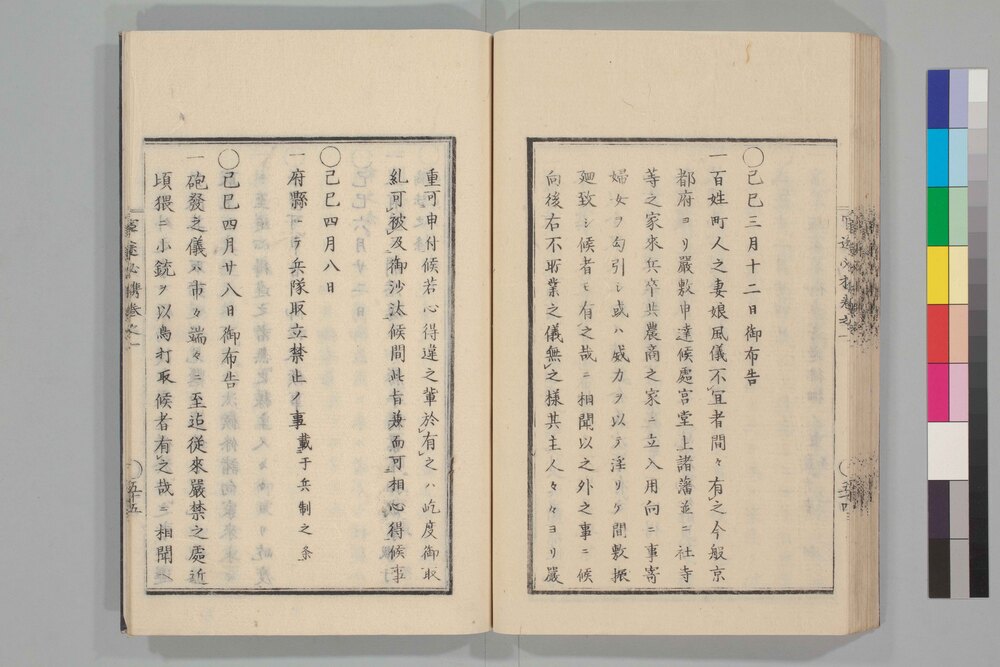 ◯己巳三月十二日御布告
一百姓町人之妻娘風儀不宜者間々有之今般京
都府ヨリ嚴敷申達候處宮堂上諸藩並ニ社寺
等之家來兵卒共農商之家ニ立入用向ニ事寄
婦女ヲ勾引シ或ハ威力ヲ以テ淫リケ間敷振
廻致シ候者モ有之哉ニ相聞以之外之事ニ候
向後右不埒業之儀無之樣其主人々々ヨリ嚴
五十四
重可申付候若心得違之輩於有之ハ屹度御取
糺可被及御沙汰候間此旨兼而可相心得候事
◯己巳四月八日
一府縣ニテ兵隊取立禁止ノ事載于兵制之条
◯己巳四月廿八日御布告
一砲發之儀ハ市々端々ニ至迄従來嚴禁之處近
頃猥ニ小銃ヲ以鳥打取候者有之哉ニ相聞
必携巻之一
五十五